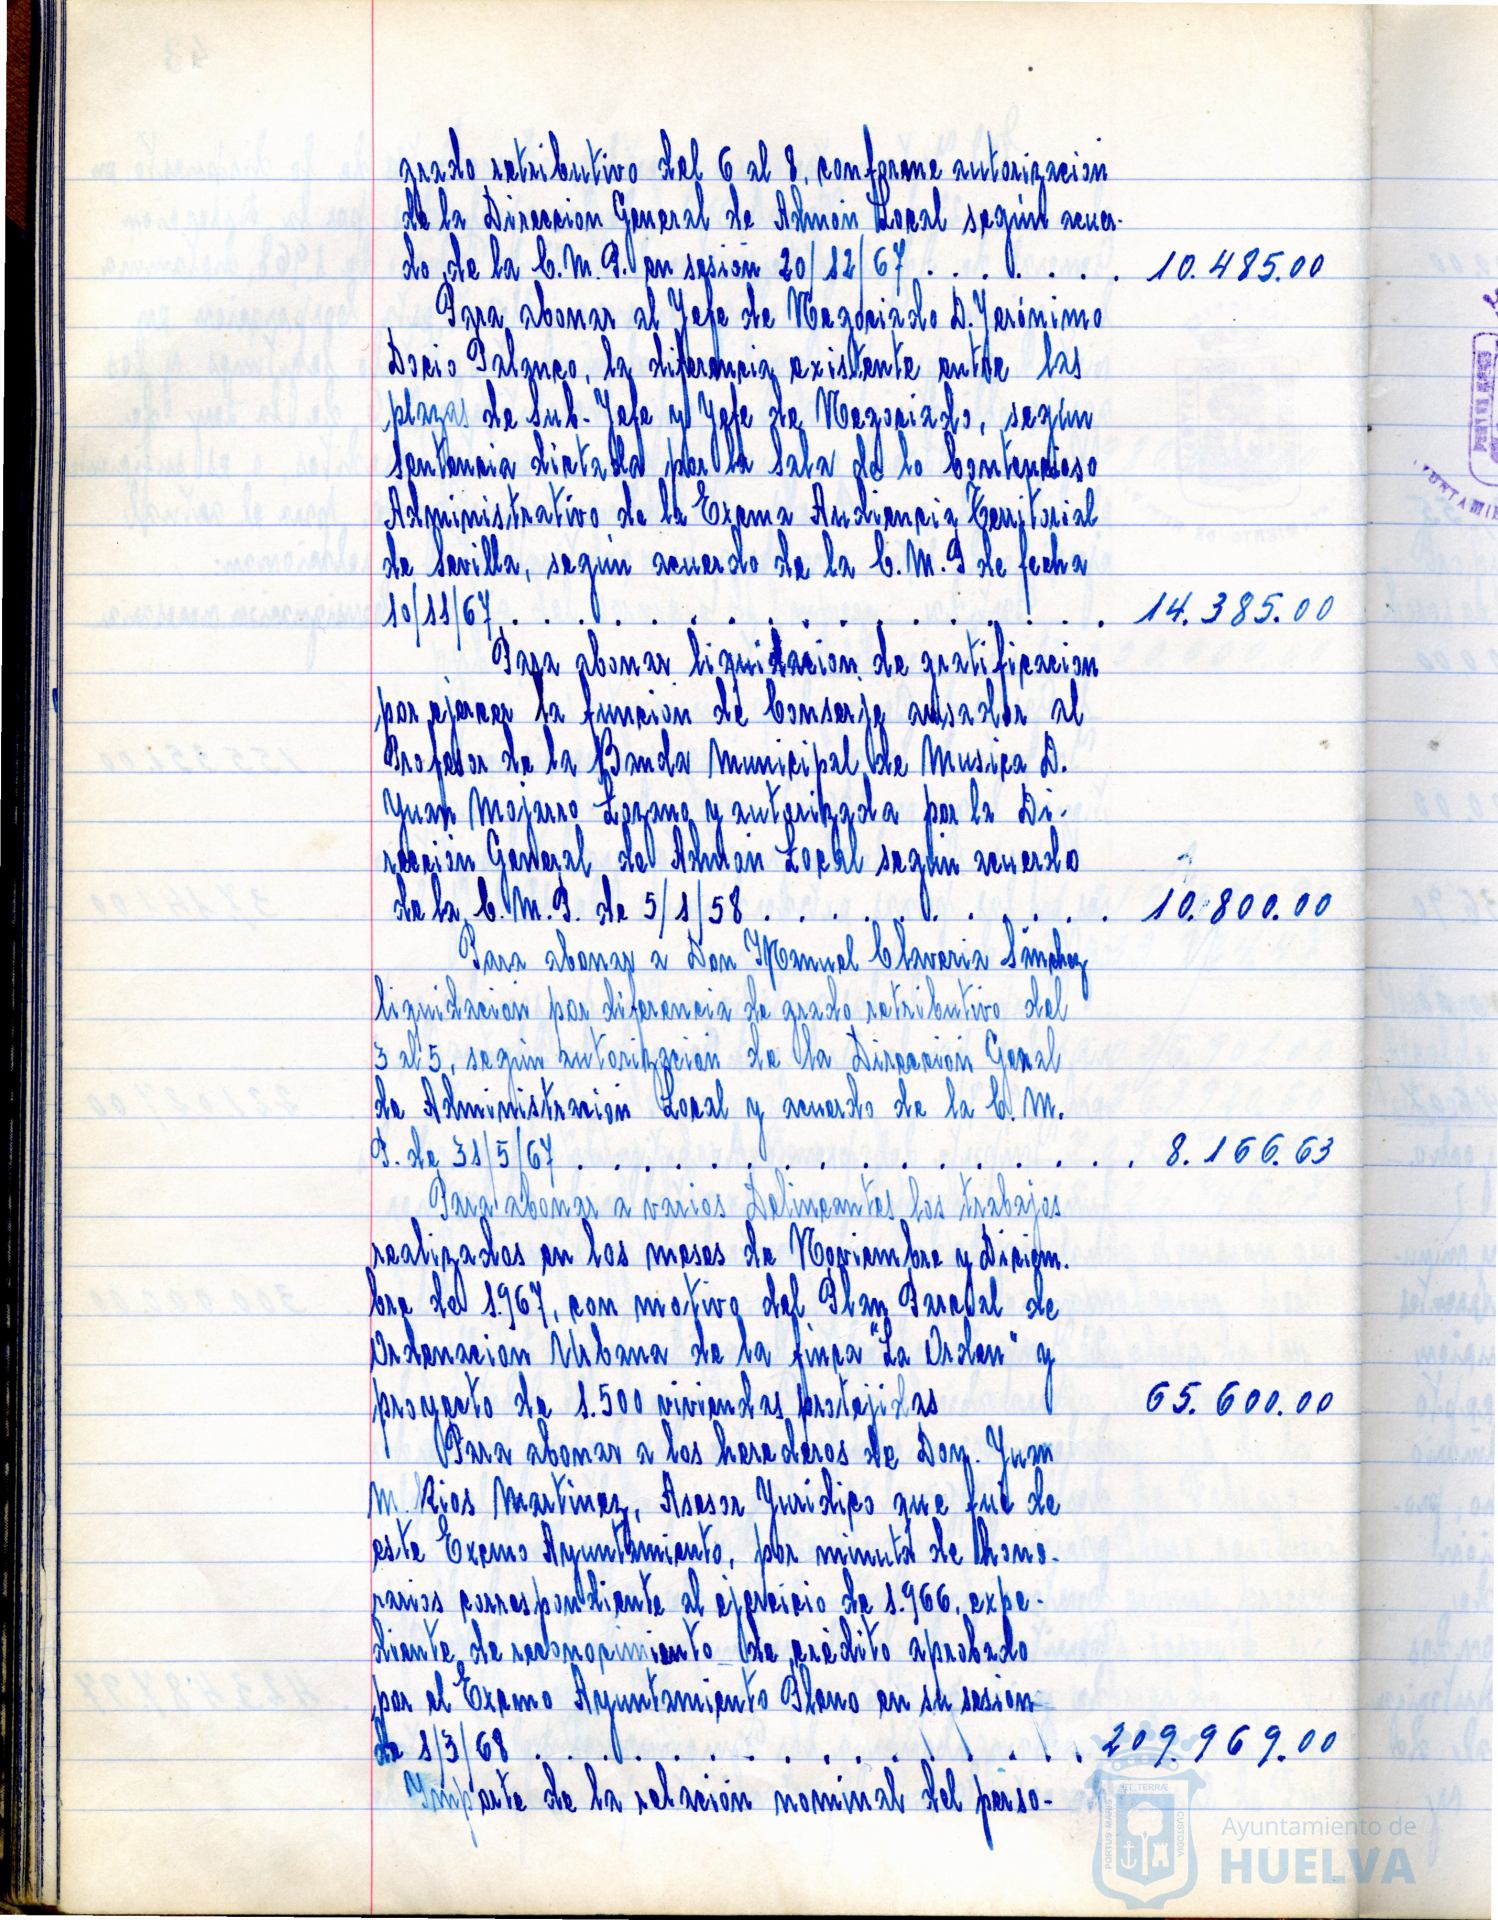 grado retributivo del 6 al 8, conforme autorización
de la Dirección General de Admón Local según acuer-
do de la C.M.P. en sesión 20/12/67 . . . . . . . 10.485.00
Para abonar al Jefe de Negociado D. Jerónimo
Docio Palanco, la diferencia existente entre las
plazas de Sub-Jefe y Jefe de Negociado, según
Sentencia dictada por la Sala de lo Contencioso
Administrativo de la Excma Audiencia Territorial
de Sevilla, según acuerdo de la C.M.P de fecha
10/11/67 . . . . . . . . . . . . . . . . 14.385.00
Para abonar liquidación de gratificacion
por ejercer la funcion de Conserje avisador al
Profesor de la Banda Municipal de Musica D.
Juan Mojarro Lozano y autorizada por la Di-
rección General de Admón Local según acuerdo
de la C.M.P. de 5/1/58 . . . . . . . . . . 10.800.00
Para abonar a Don Manuel Claveria Sánchez
liquidación por diferencia de grado retributivo del
3 al 5, según autorización de la Dirección Gaxal
de Administración Local y acuerdo de la C.M.
P. de 31/5/67 . . . . . . . . . . . . . . . . 8.166.63
Para abonar a varios Delineantes los trabajos
realizados en los meses de Noviembre y Diciem-
bre de 1.967, con motivo del Plan Parcial de
Ordenación Urbana de la finca "La Orden" y
proyecto de 1.500 viviendas protejidas 65.600.00
Para abonar a los herederos de Don. Juan
M. Rios Martinez, Asesor Juridico que fué de
este Excmo Ayuntamiento, por minuta de hono-
rarios correspondiente al ejercicio de 1.966, expe-
diente de reconocimiento de crédito aprobado
por el Excmo Ayuntamiento Pleno en su sesión
de 1/3/68 . . . . . . . . . . . . . . . . 209.969.00
Importe de la relación nominal del perso-
Ayuntamiento de
HUELVA